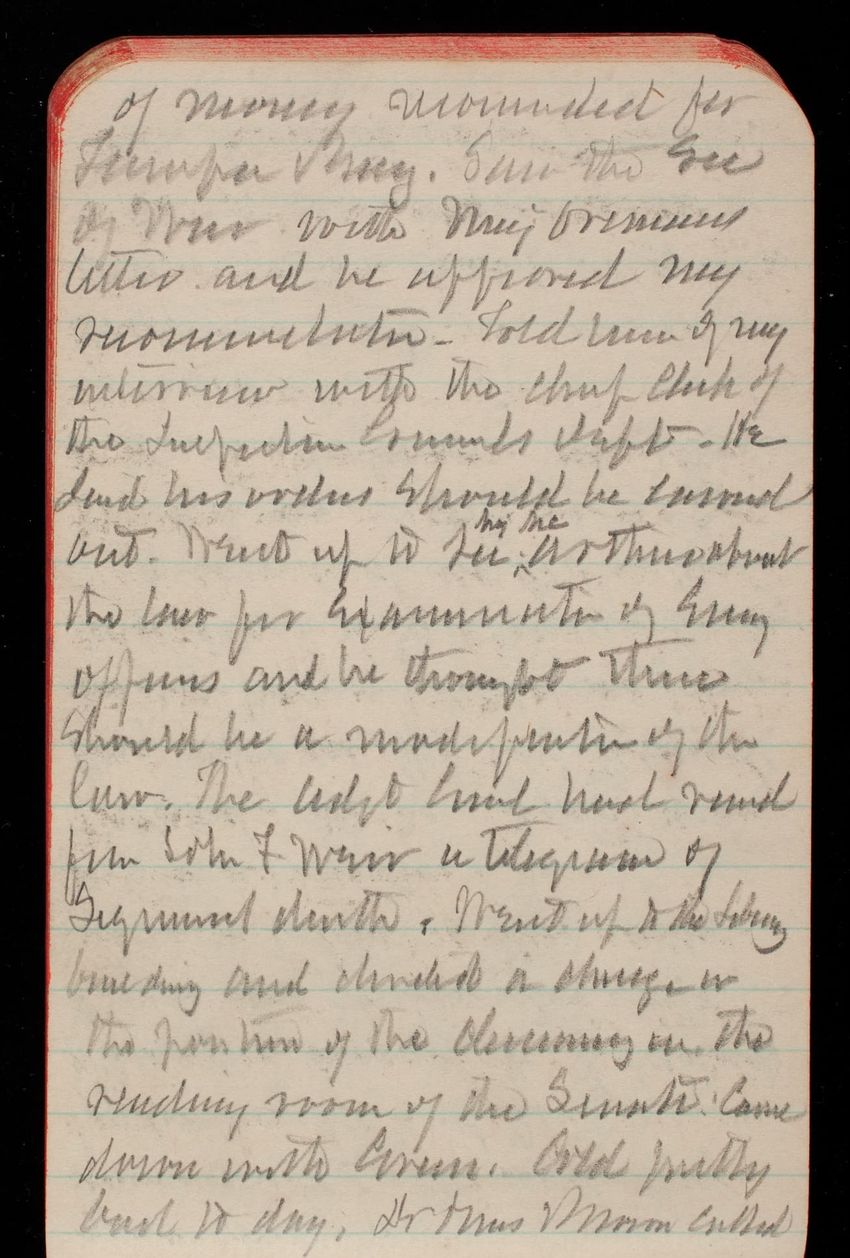 of money recommended for
Tampa Bay. Saw the Sec
of War with Maj
letter and he approved my
Told him of my
interview with the chief Clerk of
the Inspection Dept - He
said his orders should be carried
out. Went up to see Mr Mc Arthur about
the law for Examination of Engr
officers and he thought there
should be a modification of the
law. The Adjt Genl had recd
from John F Weir a telegram of
death. Went up to the Library
building and decided a change in
the position of the in the
reading room of the Senate. Came
down with Green. Cold pretty
bad to day. called